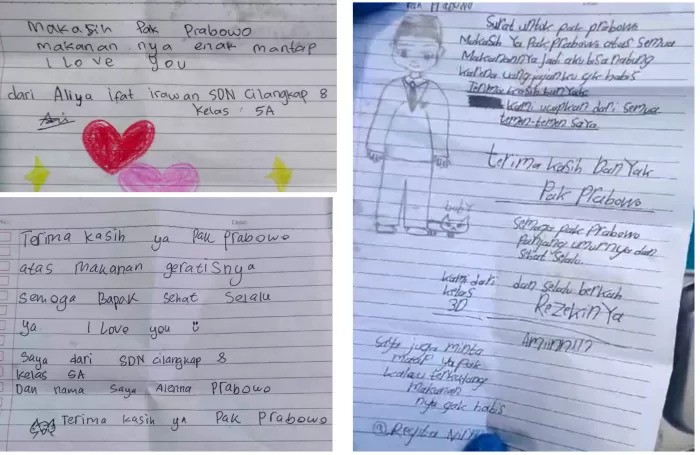 Makasih Pak Prabowo
makanan nya enak mantap
I Love You
dari Aliya ifat irawan SDN Cilangkap 8
Kelas : 5A
Terima kasih ya Pak Prabowo
atas makanan geratisnya
semoga Bapak sehat selalu
ya I Love you
Saya dari SDN cilangkap 8
Kelas 5A
Dan nama saya Alenna Prabowo
Terima kasih ya Pak Prabowo
Surat untuk pak prabowo
Makasih Ya Pak Prabowo atas semua
Makanannya jadi aku bisa nabung
karna uang jajanku gk habis
Terima kasih banyak
kami ucapkan dari semua
temen-temen saya
terima kasih Banyak
Pak Prabowo
baby
Semoga pak Prabowo
panjang umurnya dan
sehat selalu
dan selalu berkah
Rezekinya
Amiinnn
kami dari
kelas
3D
Saya juga minta
maaf ya pak
kalau terkadang
makanan
nya gak habis